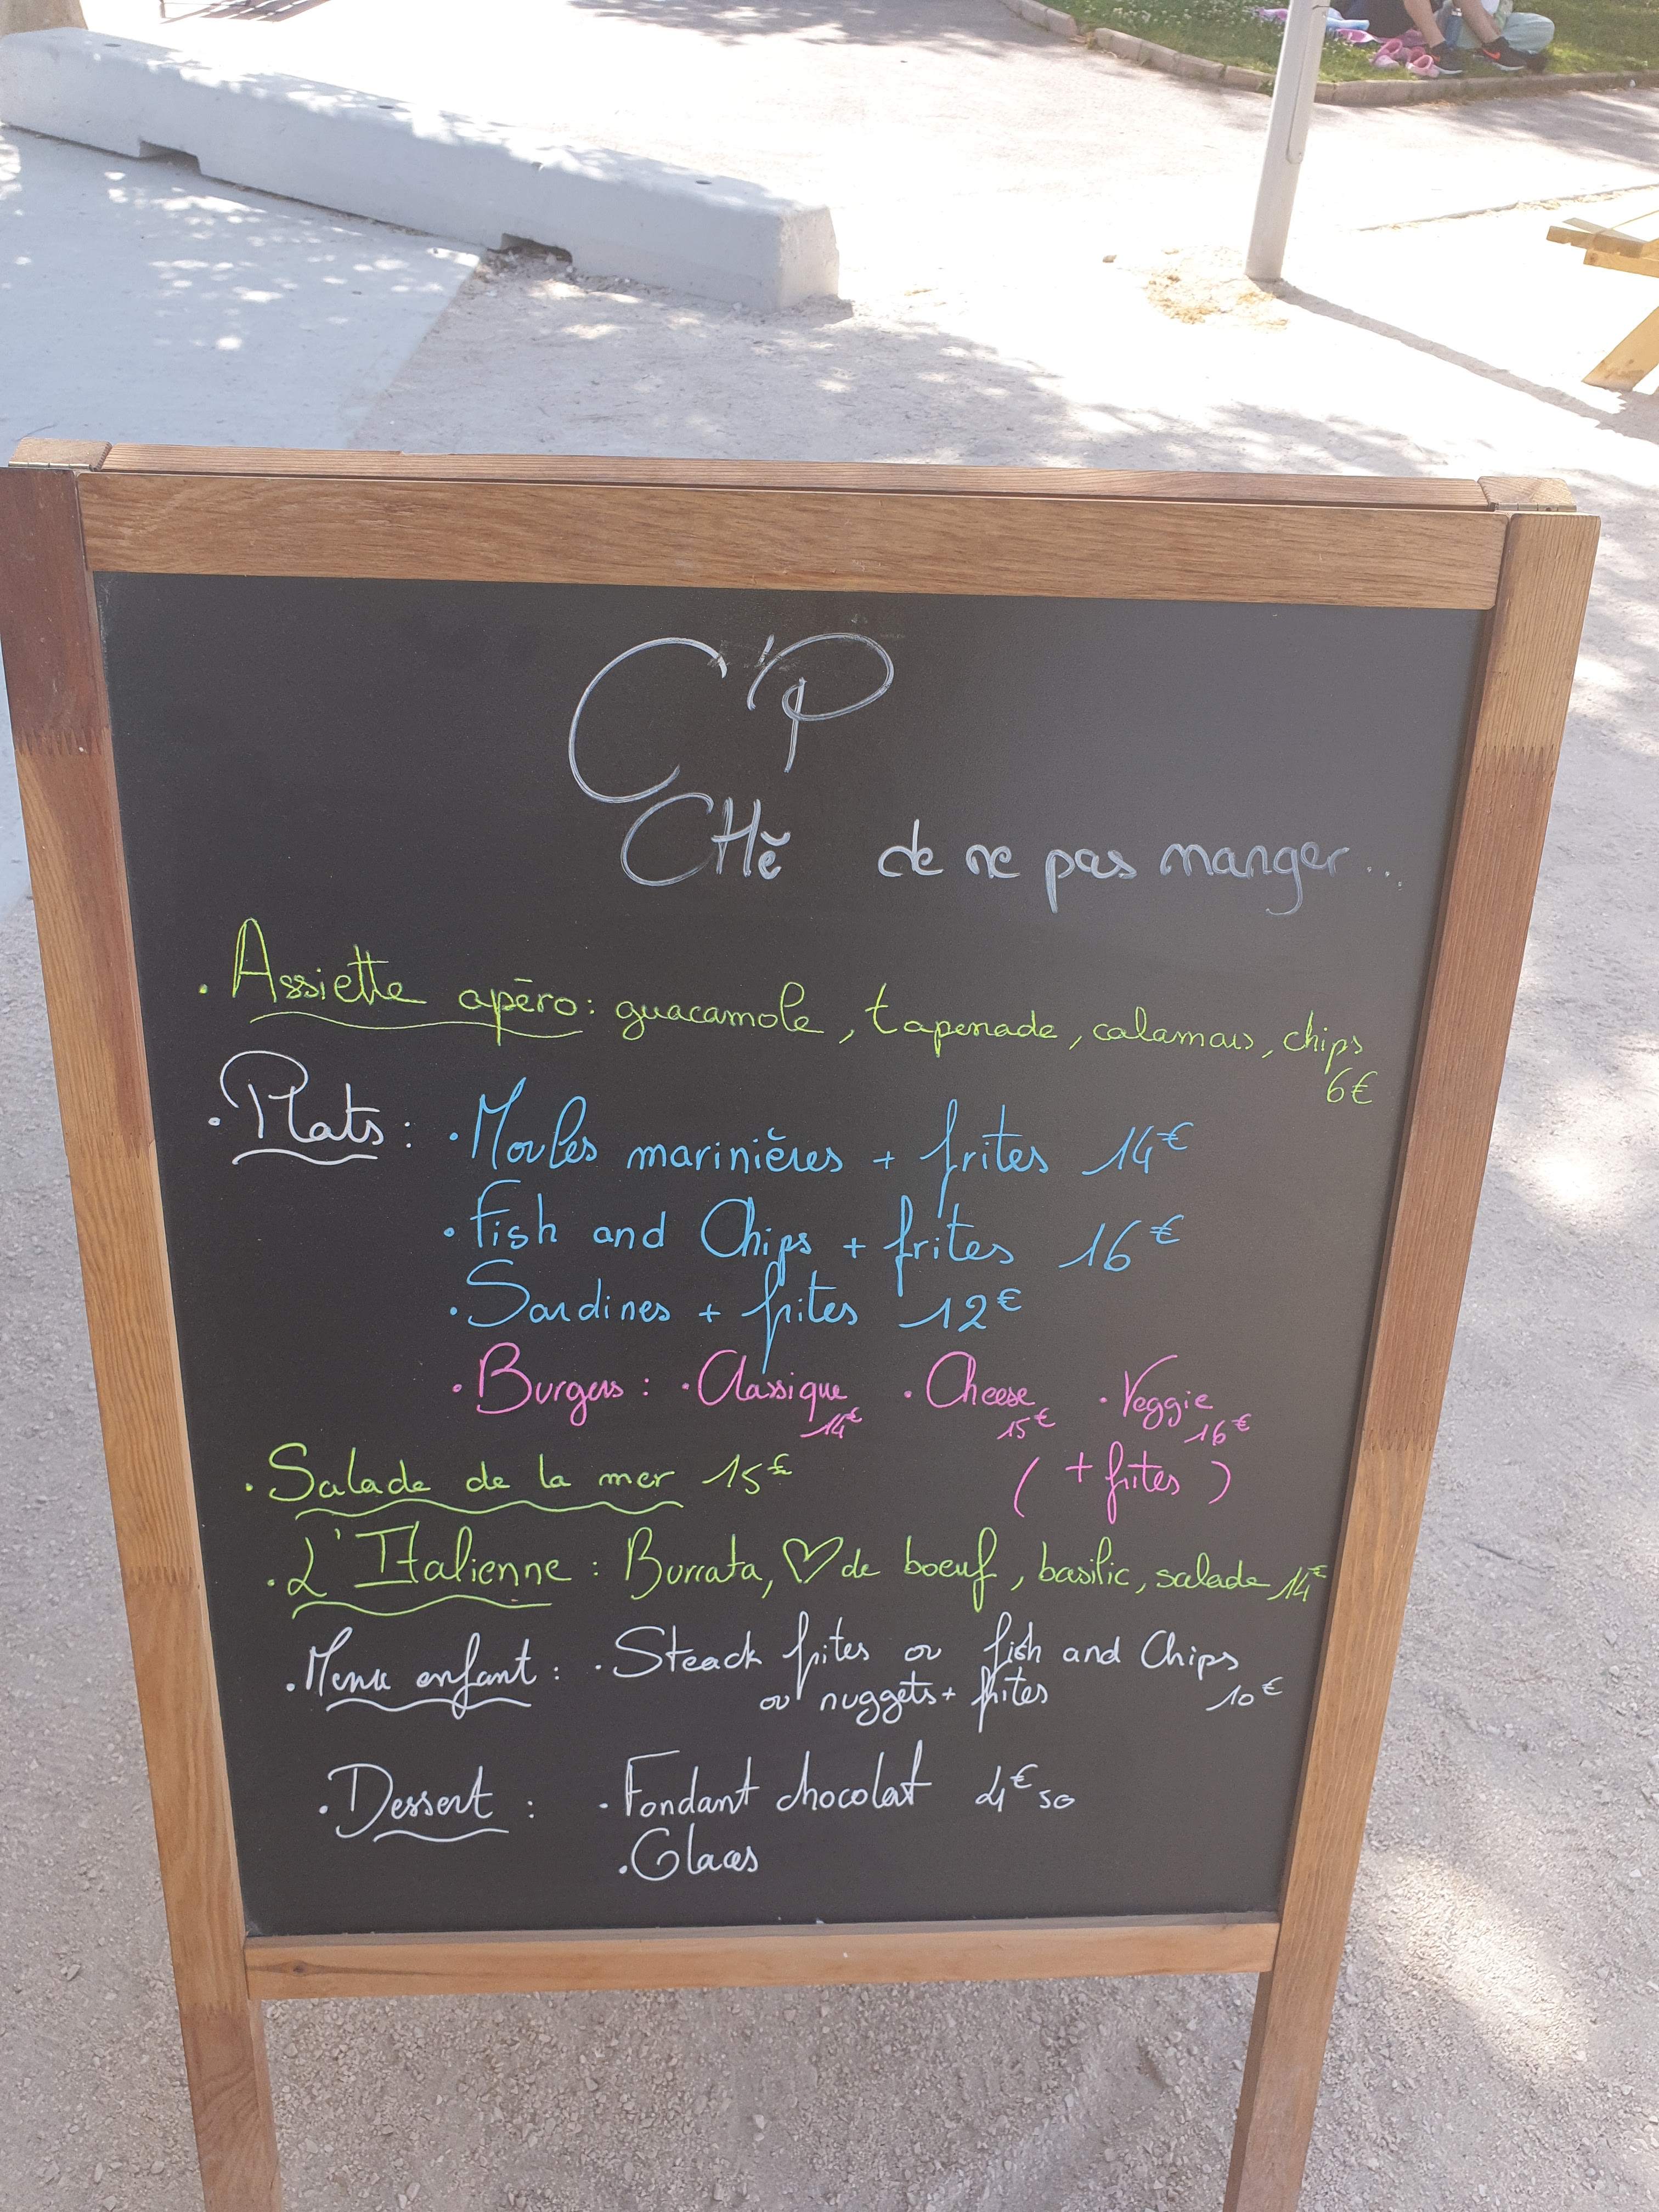 C'P
CHĕ de ne pas manger...
. Assiette apéro : guacamole, tapenade, calamars, chips
6€
. Plats : . Moules marinières + frites 14€
. Fish and Chips + frites 16€
. Sardines + frites 12€
. Burgers : . Classique . Cheese . Veggie
14€ 15€ 16€
. Salade de la mer 15€ ( + frites )
. L'Italienne : Burrata, ♡ de boeuf, basilic, salade 14€
. Menu enfant : . Steack frites ou fish and Chips
ou nuggets + frites 10€
. Dessert : . Fondant chocolat 4€50
. Glaces